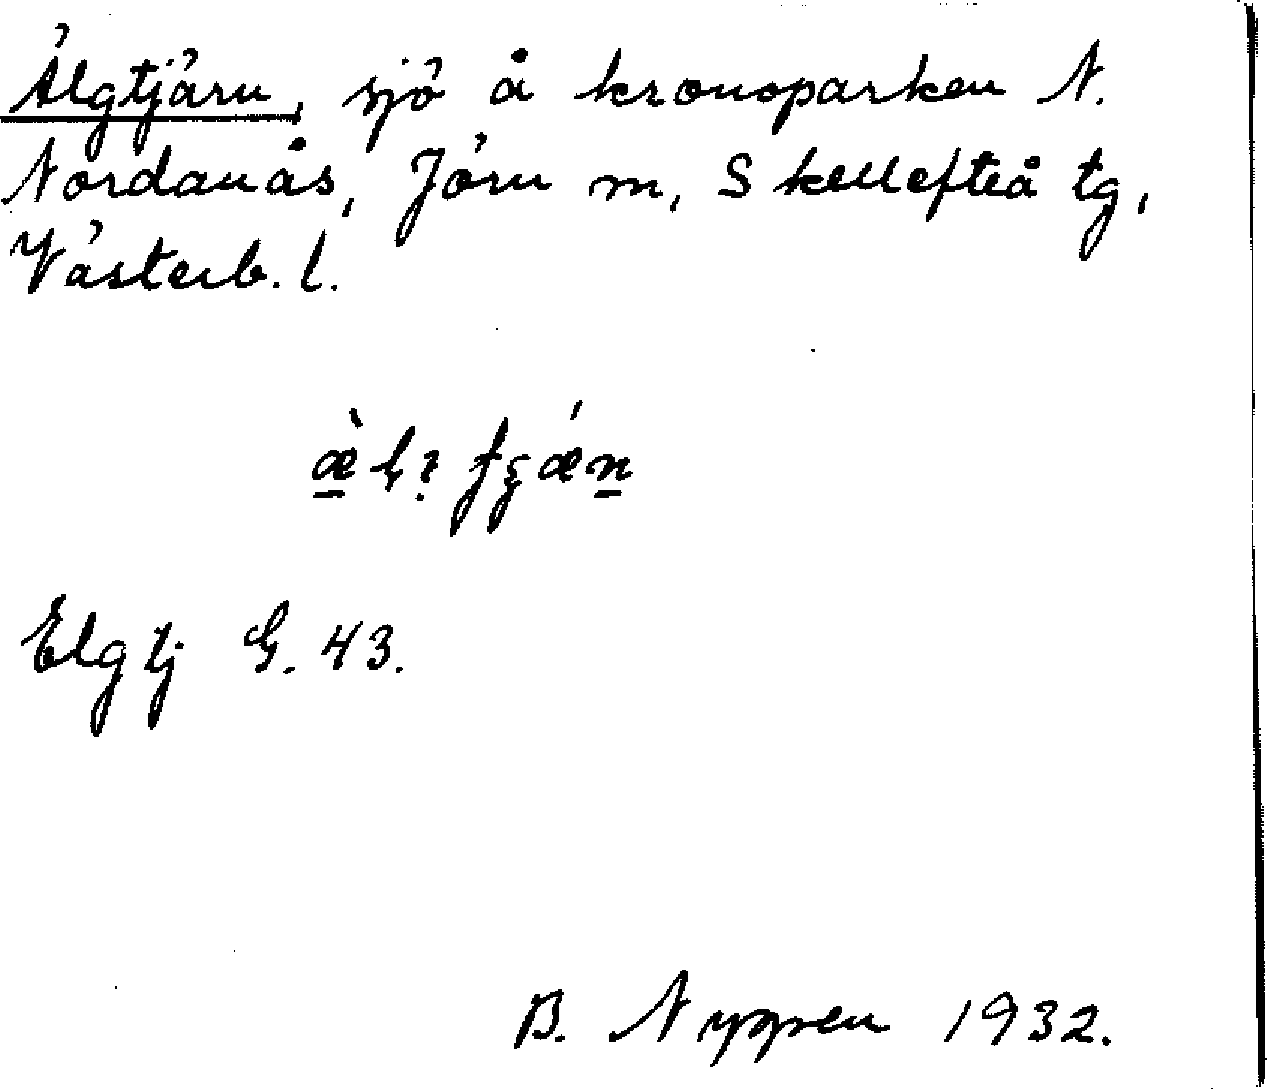 Älgtjärn, sjö å kronoparken N.
Nordanås, Jörn m, Skellefteå tg,
Västerb. l.
Elgtj G. 43.
B. Nygren 1932.